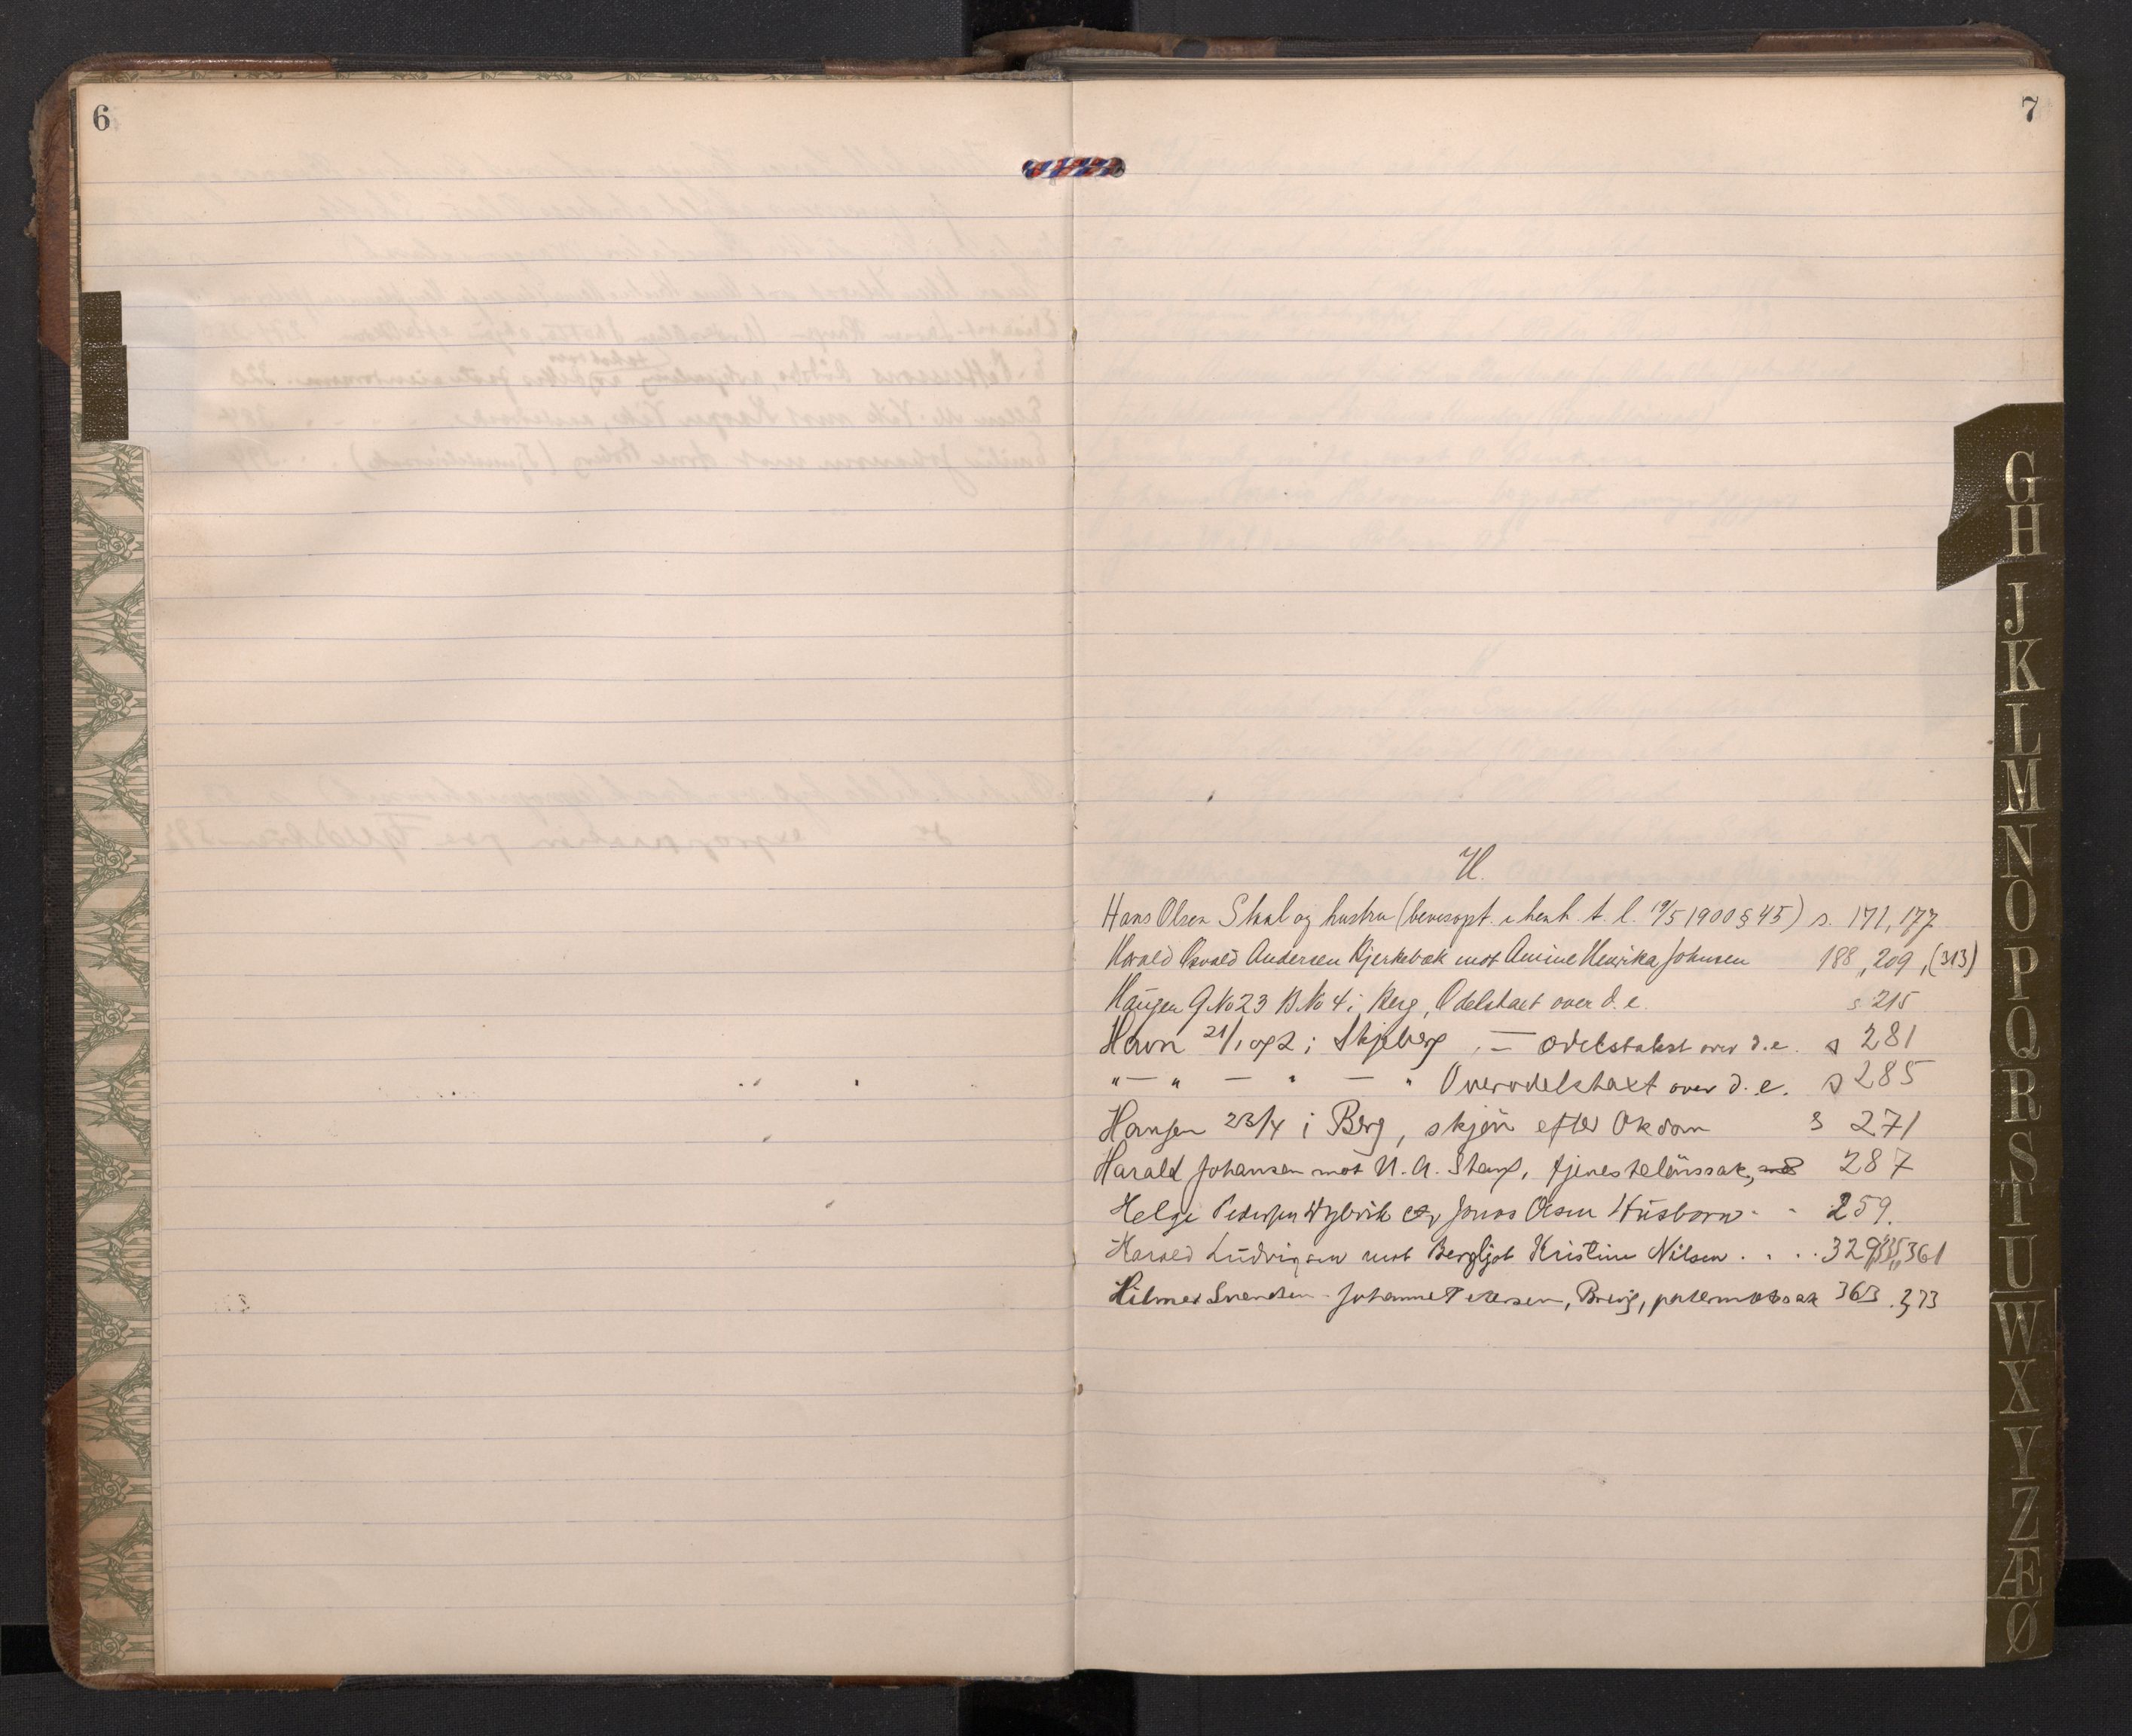 6
7
H.
Hans Olsen Skal og hustru (bevisopt. i henh. t. l. 19/5 1900 § 45) s. 171, 177
Harald Osvald Andersen Kjerkebæk mot Amine Henrika Johnsen 188, 209, (313)
Haugen G.No 23 B.No 4 i Berg, Odelstaxt over d. e. s 215
Havn 21/1 og 2 i Skjeberg, — odelstakst over d.e. s 281
" — " — " — " Overodelstaxt over d. e. s 285
Haugen 23/4 i Berg, skjøn efter s 271
Harald Johansen mot N. A. Stang, tjenestelønssak, 287
Helge Pedersen ctr. Jonas Olsen 259.
Harald Ludvigsen mot Bergljot Kristine Nilsen . . . 329, 361
Hilmer Svendsen - Johanne Petersen, Berg, paternitetssak 363. 373
G
H
J
K
L
M
N
O
P
Q
R
S
T
U
W
X
Y
Z
Æ
Ø